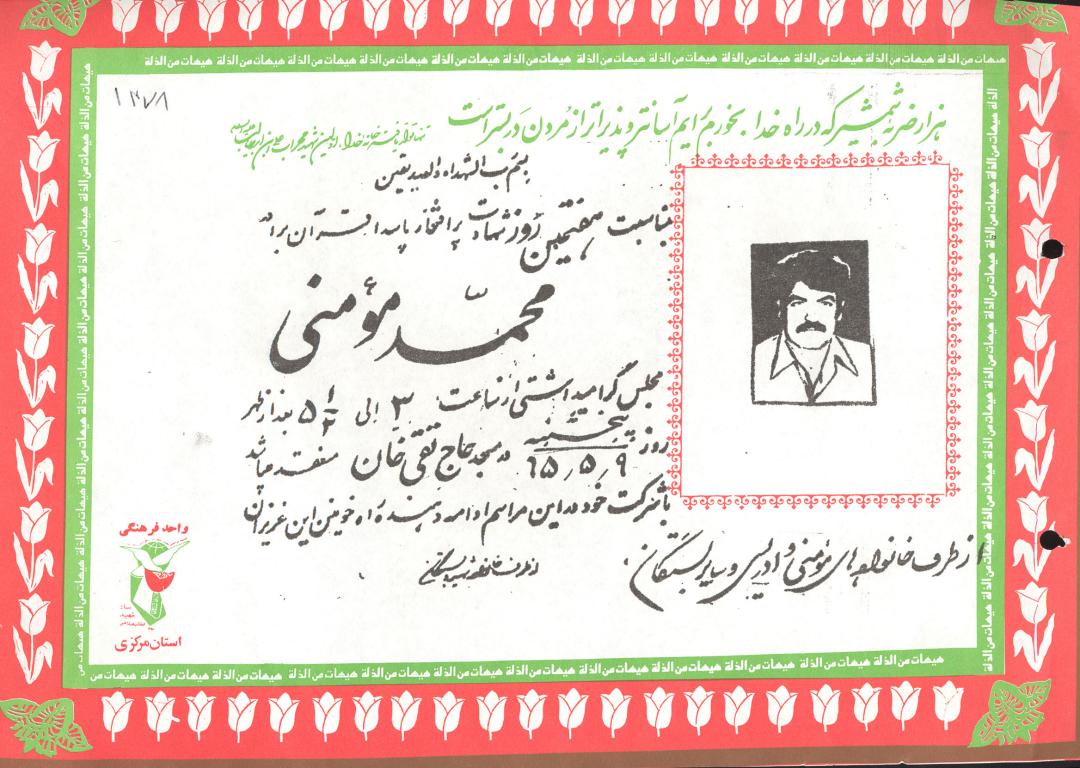 ۱۳۷۸
هیهات من الذلة هیهات من الذلة هیهات من الذلة هیهات من الذلة هیهات من الذلة هیهات من الذلة هیهات من الذلة هیهات من الذلة
هزار ضربه شمشیر که در راه خدا بخورم برایم آسانتر و پذیراتر از مردن در بستر است
بسم رب الشهداء والصدیقین
بمناسبت هفتمین روز شهادت پر افتخار پاسدار قرآن برادر
محمد مؤمنی
مجلس گرامیداشتی از ساعت ۳ الی ۵ ۱/۲ بعد از ظهر
روز پنجشنبه ۶۵٫۵٫۹ در مسجد حاج تقی خان منعقد میباشد
با شرکت خود در این مراسم ادامه دهنده راه خونین این عزیزان
از طرف خانواده های مؤمنی و ادریسی و سایر بستگان
واحد فرهنگی
بنیاد
شهید
استان مرکزی
هیهات من الذلة هیهات من الذلة هیهات من الذلة هیهات من الذلة هیهات من الذلة هیهات من الذلة هیهات من الذلة هیهات من الذلة